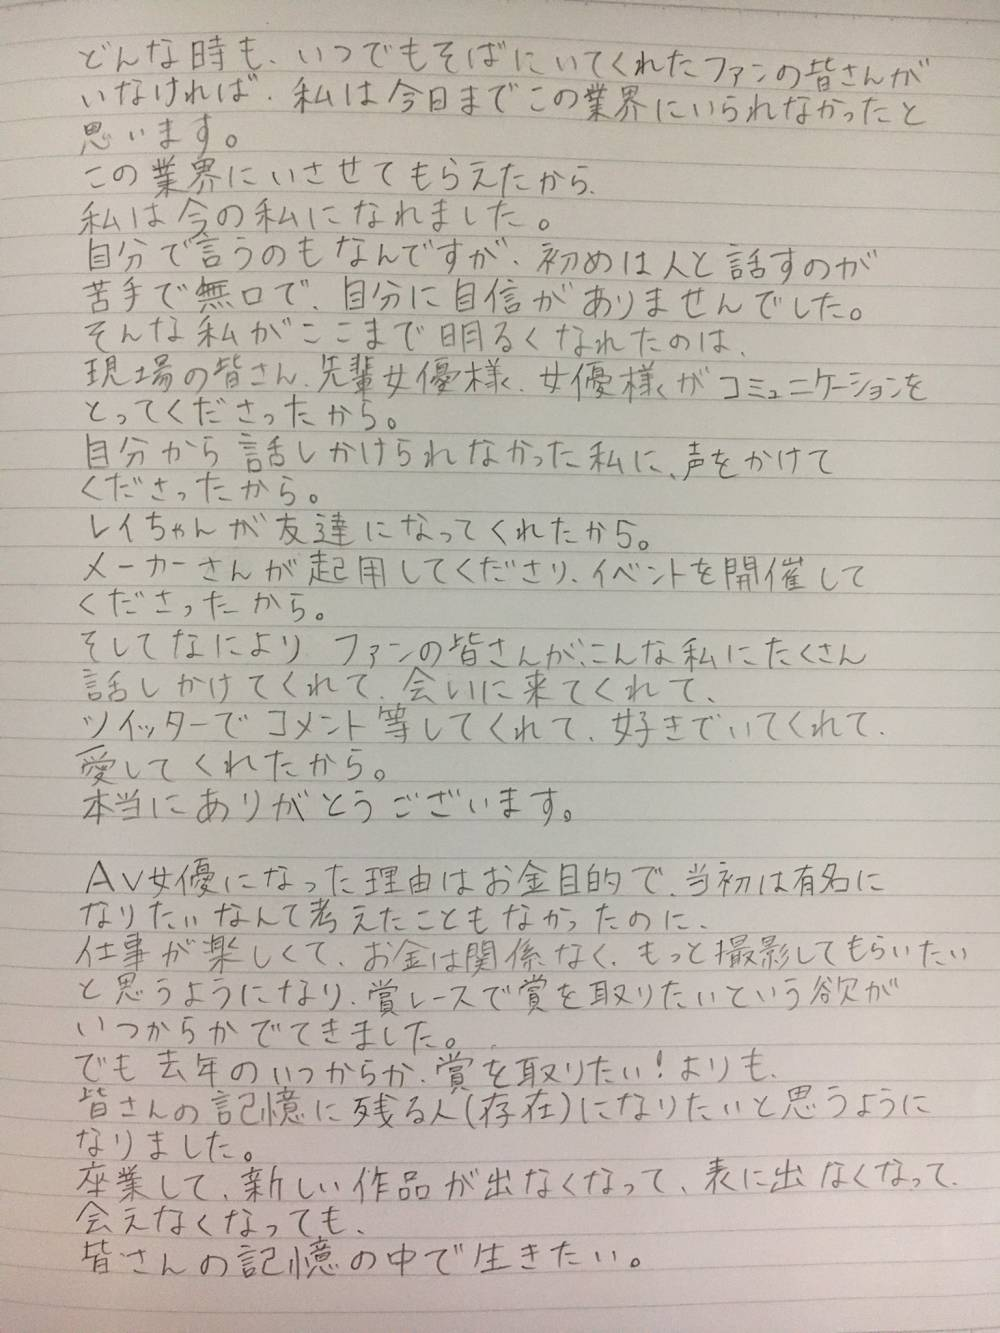 どんな時も、いつでもそばにいてくれたファンの皆さんが
いなければ、私は今日までこの業界にいられなかったと
思います。
この業界にいさせてもらえたから、
私は今の私になれました。
自分で言うのもなんですが、初めは人と話すのが
苦手で無口で、自分に自信がありませんでした。
そんな私がここまで明るくなれたのは、
現場の皆さん、先輩女優様、女優様がコミュニケーションを
とってくださったから。
自分から話しかけられなかった私に、声をかけて
くださったから。
レイちゃんが友達になってくれたから。
メーカーさんが起用してくださり、イベントを開催して
くださったから。
そしてなにより ファンの皆さんが、こんな私にたくさん
話しかけてくれて、会いに来てくれて、
ツイッターでコメント等してくれて、好きでいてくれて、
愛してくれたから。
本当にありがとうございます。
AV女優になった理由はお金目的で、当初は有名に
なりたいなんて考えたこともなかったのに、
仕事が楽しくて、お金は関係なく、もっと撮影してもらいたい
と思うようになり、賞レースで賞を取りたいという欲が
いつからかでてきました。
でも去年のいつからか、賞を取りたい!よりも、
皆さんの記憶に残る人(存在)になりたいと思うように
なりました。
卒業して、新しい作品が出なくなって、表に出なくなって、
会えなくなっても、
皆さんの記憶の中で生きたい。